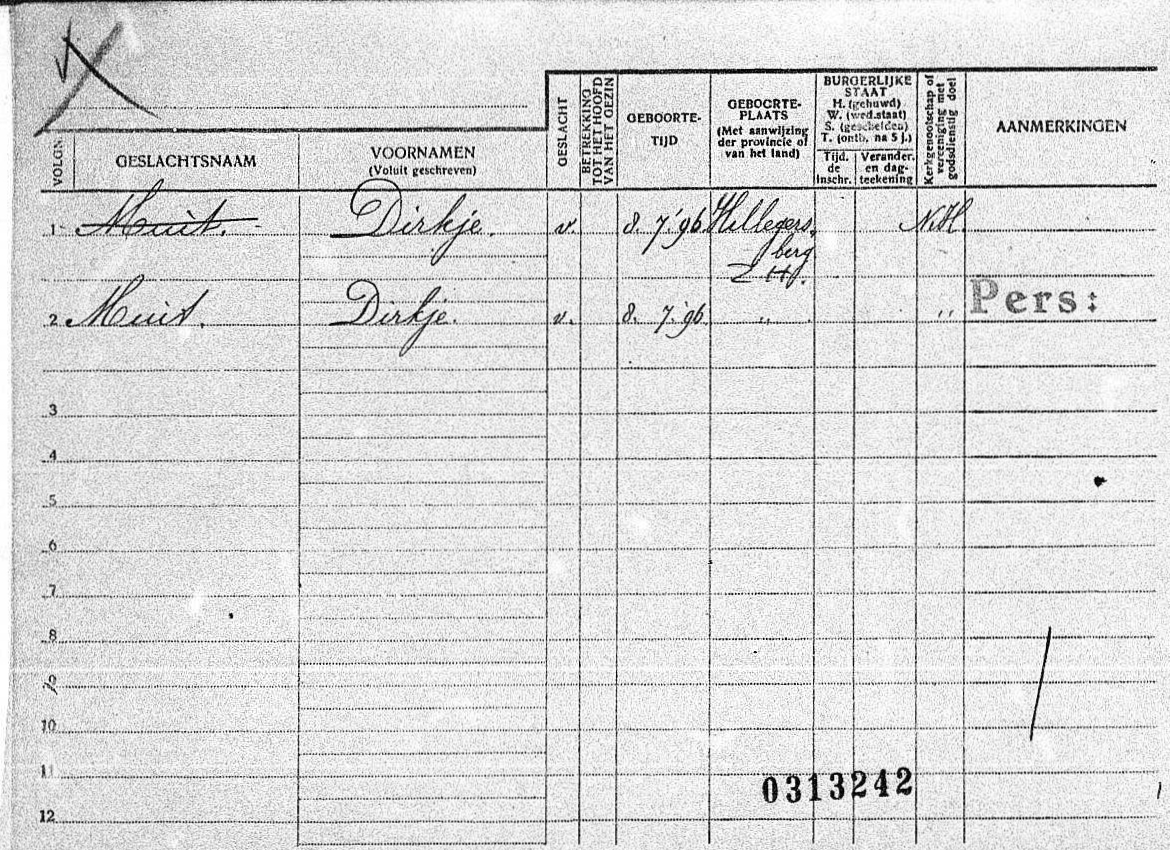 VOLGN
GESLACHTSNAAM
VOORNAMEN
(Voluit geschreven)
GESLACHT
BETREKKING
TOT HET HOOFD
VAN HET GEZIN
GEBOORTE-
TIJD
GEBOORTE-
PLAATS
(Met aanwijzing
der provincie of
van het land)
BURGERLIJKE
STAAT
H. (gehuwd)
W. (wed.staat)
S. (gescheiden)
T. (ontb. na 5 j.)
Tijd.
de
Inschr.
Verander.
en dag-
teekening
Kerkgenootschap of
vereeniging met
godsdienstig doel
AANMERKINGEN
1 Muit. Dirkje. v. 8. 7.'96 Hillegers- N.H.
berg
Z.H.
2 Muit. Dirkje. v. 8. 7.'96 " " Pers:
3
4
5
6
7
8
9
10
11
0313242
12